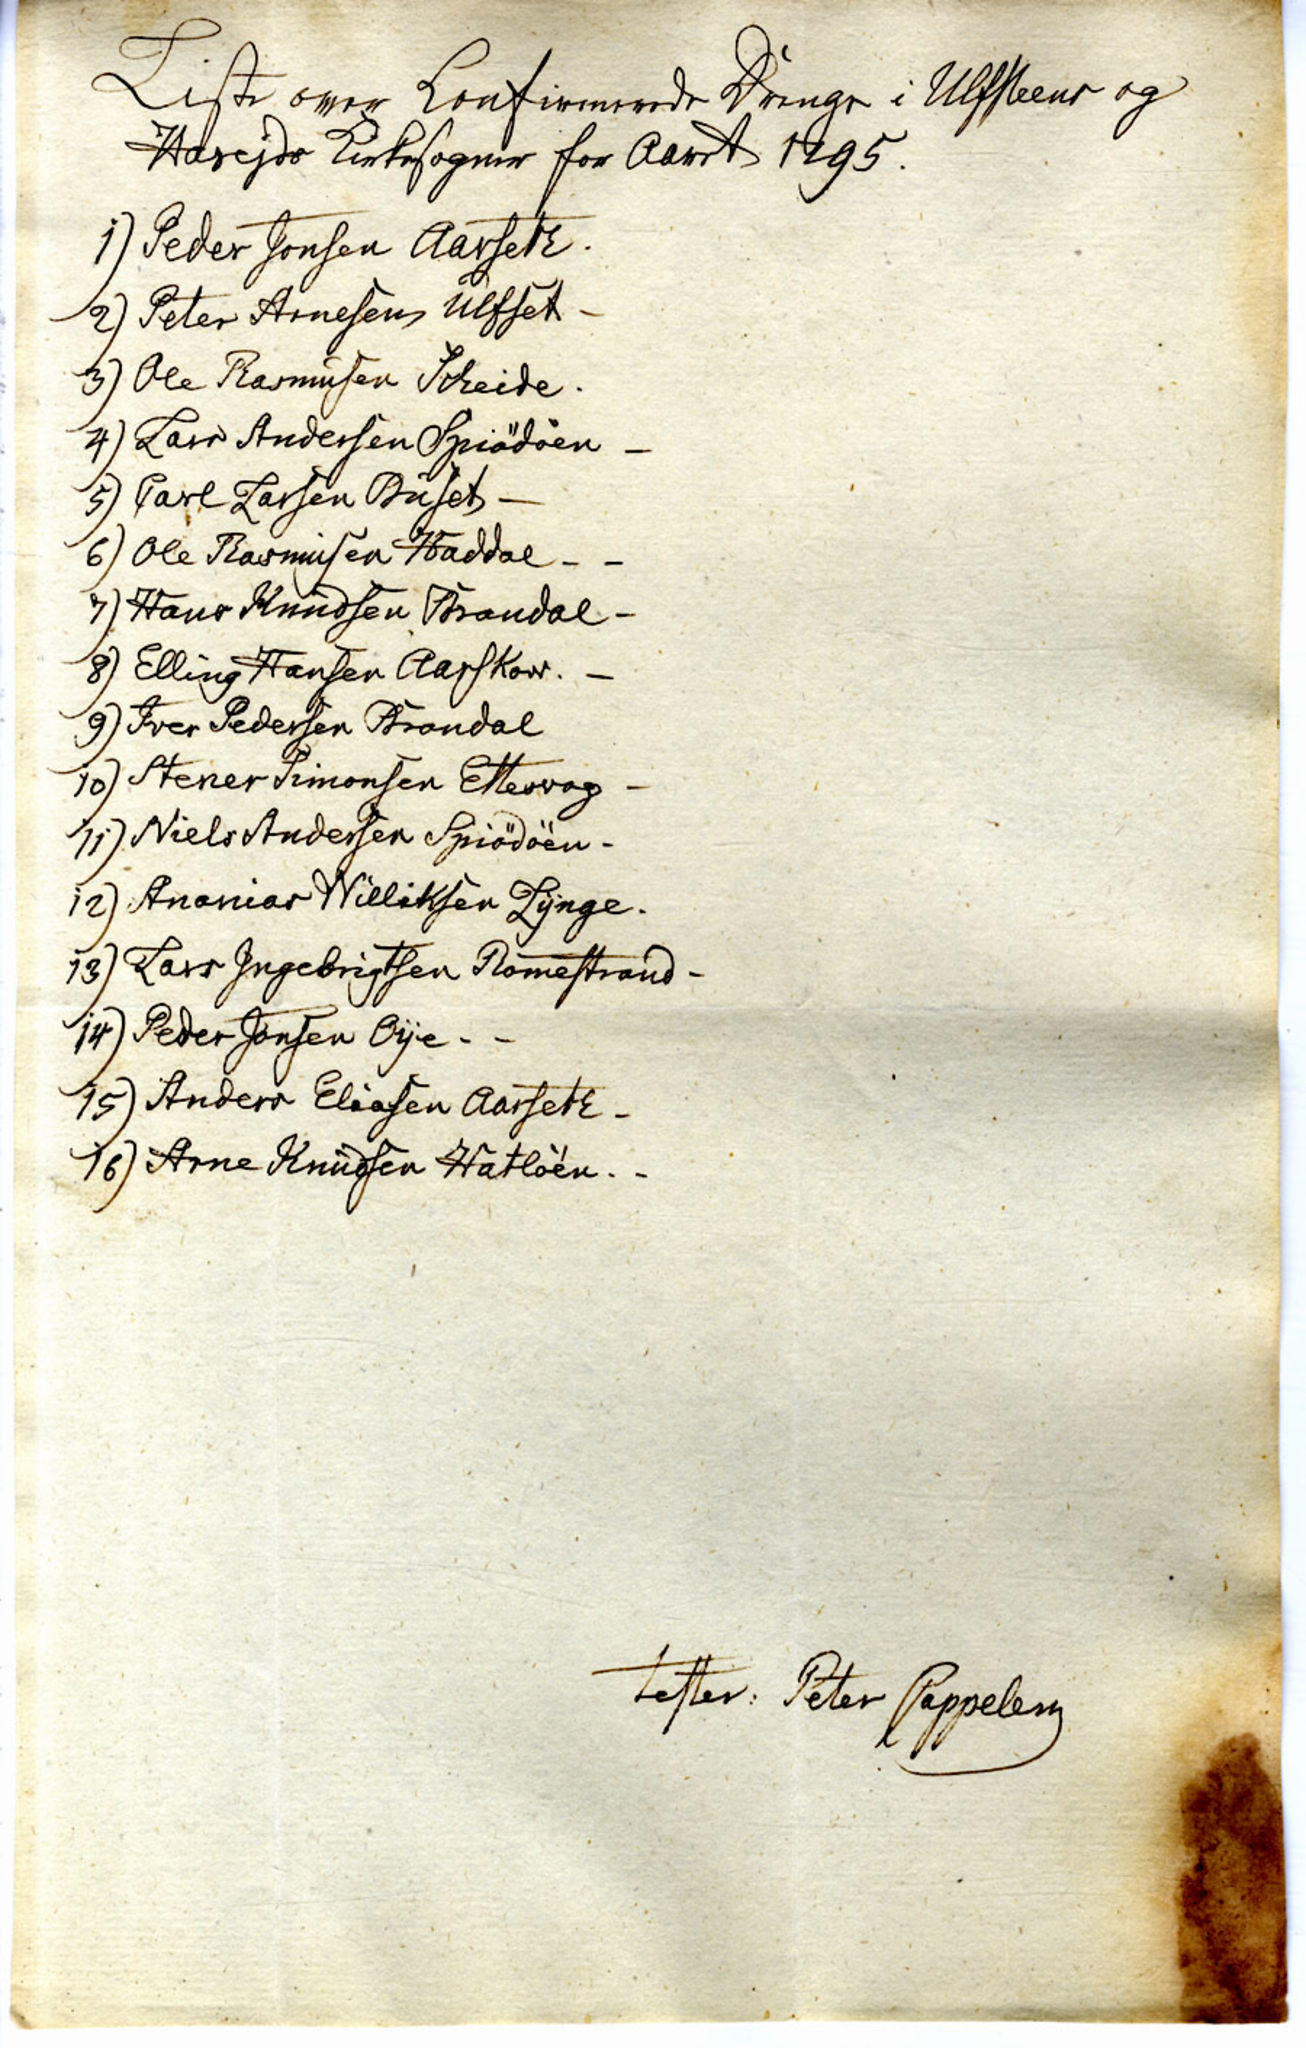 Liste over Confirmerede Drenge i Ulfsteens og
Harejds Kirkesogner for Aaret 1795.
1) Peder Jonsen Aarseth.
2) Peter Arnesen Ulfset -
3) Ole Rasmusen Scheide.
4) Lars Andersen Spiödöen -
5) Carl Larsen Buset -
6) Ole Rasmusen Haddal - -
7) Hans Knudsen Brandal -
8) Elling Hansen Aarskow. -
9) Iver Pedersen Brandal
10) Stener Simonsen Ettesvog -
11) Niels Andersen Spiödöen -
12) Ananias Williksen Lÿnge.
13) Lars Ingebrigtsen Romestrand -
14) Peder Jonsen Oÿe - -
15) Anders Eliasen Aarseth -
16) Arne Knudsen Hatlöen. -
tester: Peter Cappelen